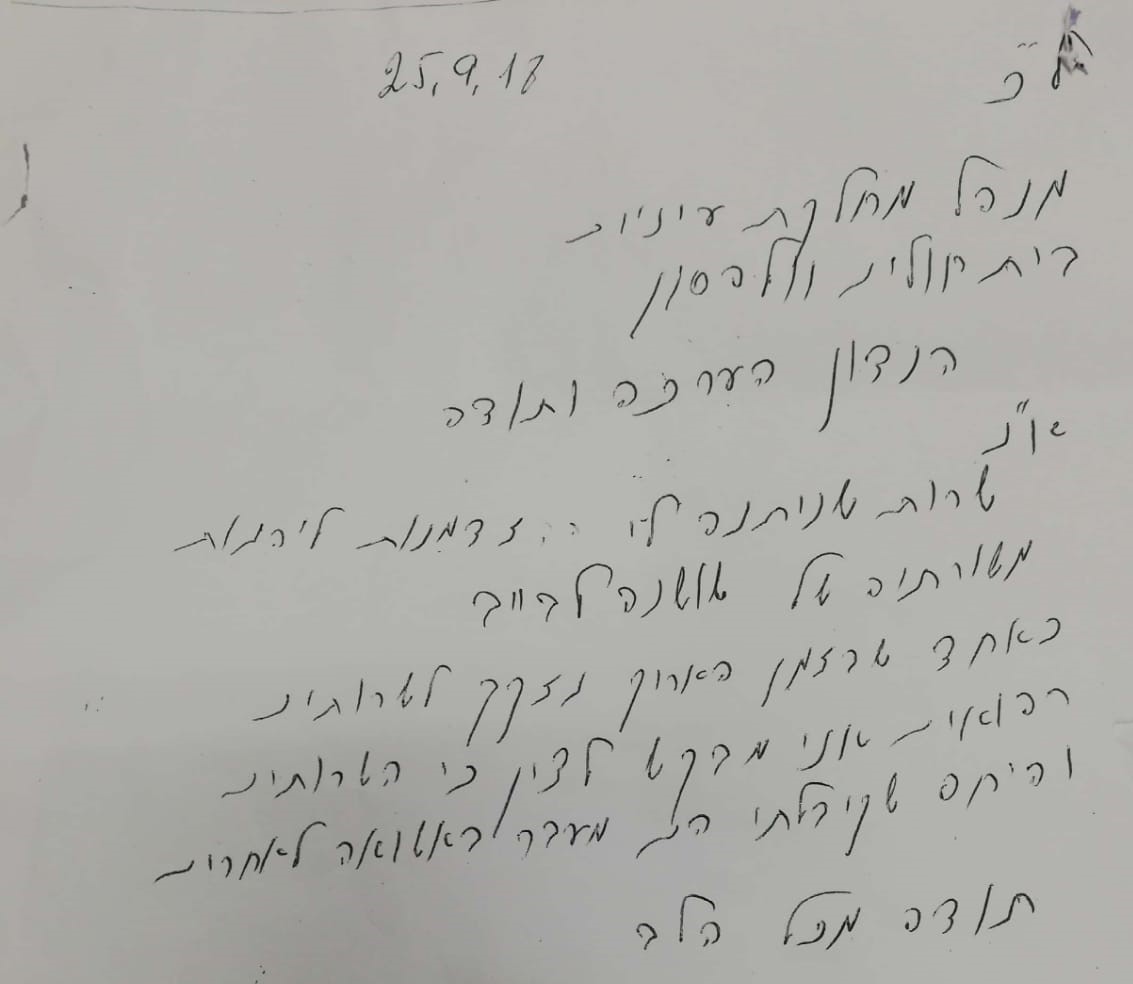 25.9.18
מנהל מחלקת עיניות
בית חולים וולפסון
הנדון הערכה ותודה
א"נ
שרות שניתנה לי הזדמנות ליהנות
משורתיה של שושנה לבייב
כאחד שבזמן הארוך נזקק לשרותים
רפואיים אני מבקש לציין כי השרותים
והיחס שקיבלתי הם מעבר באשוואה לאחרים
תודה מכל הלב